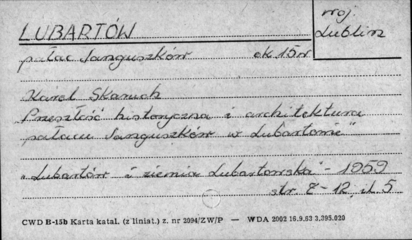 LUBARTÓW
woj
Lublin
pałac Sanguszków ok 15 w
Karol Skaruch
Przeszłość historyczna i architektura
pałacu Sanguszków w Lubartowie"
"Lubartów i ziemia Lubartowska" - 1959
str. 8-12, il 5
CWD B-15b Karta katal. (z liniat.) z. nr 2094/ZW/P — WDA 2002 16.9.63 2,395.020